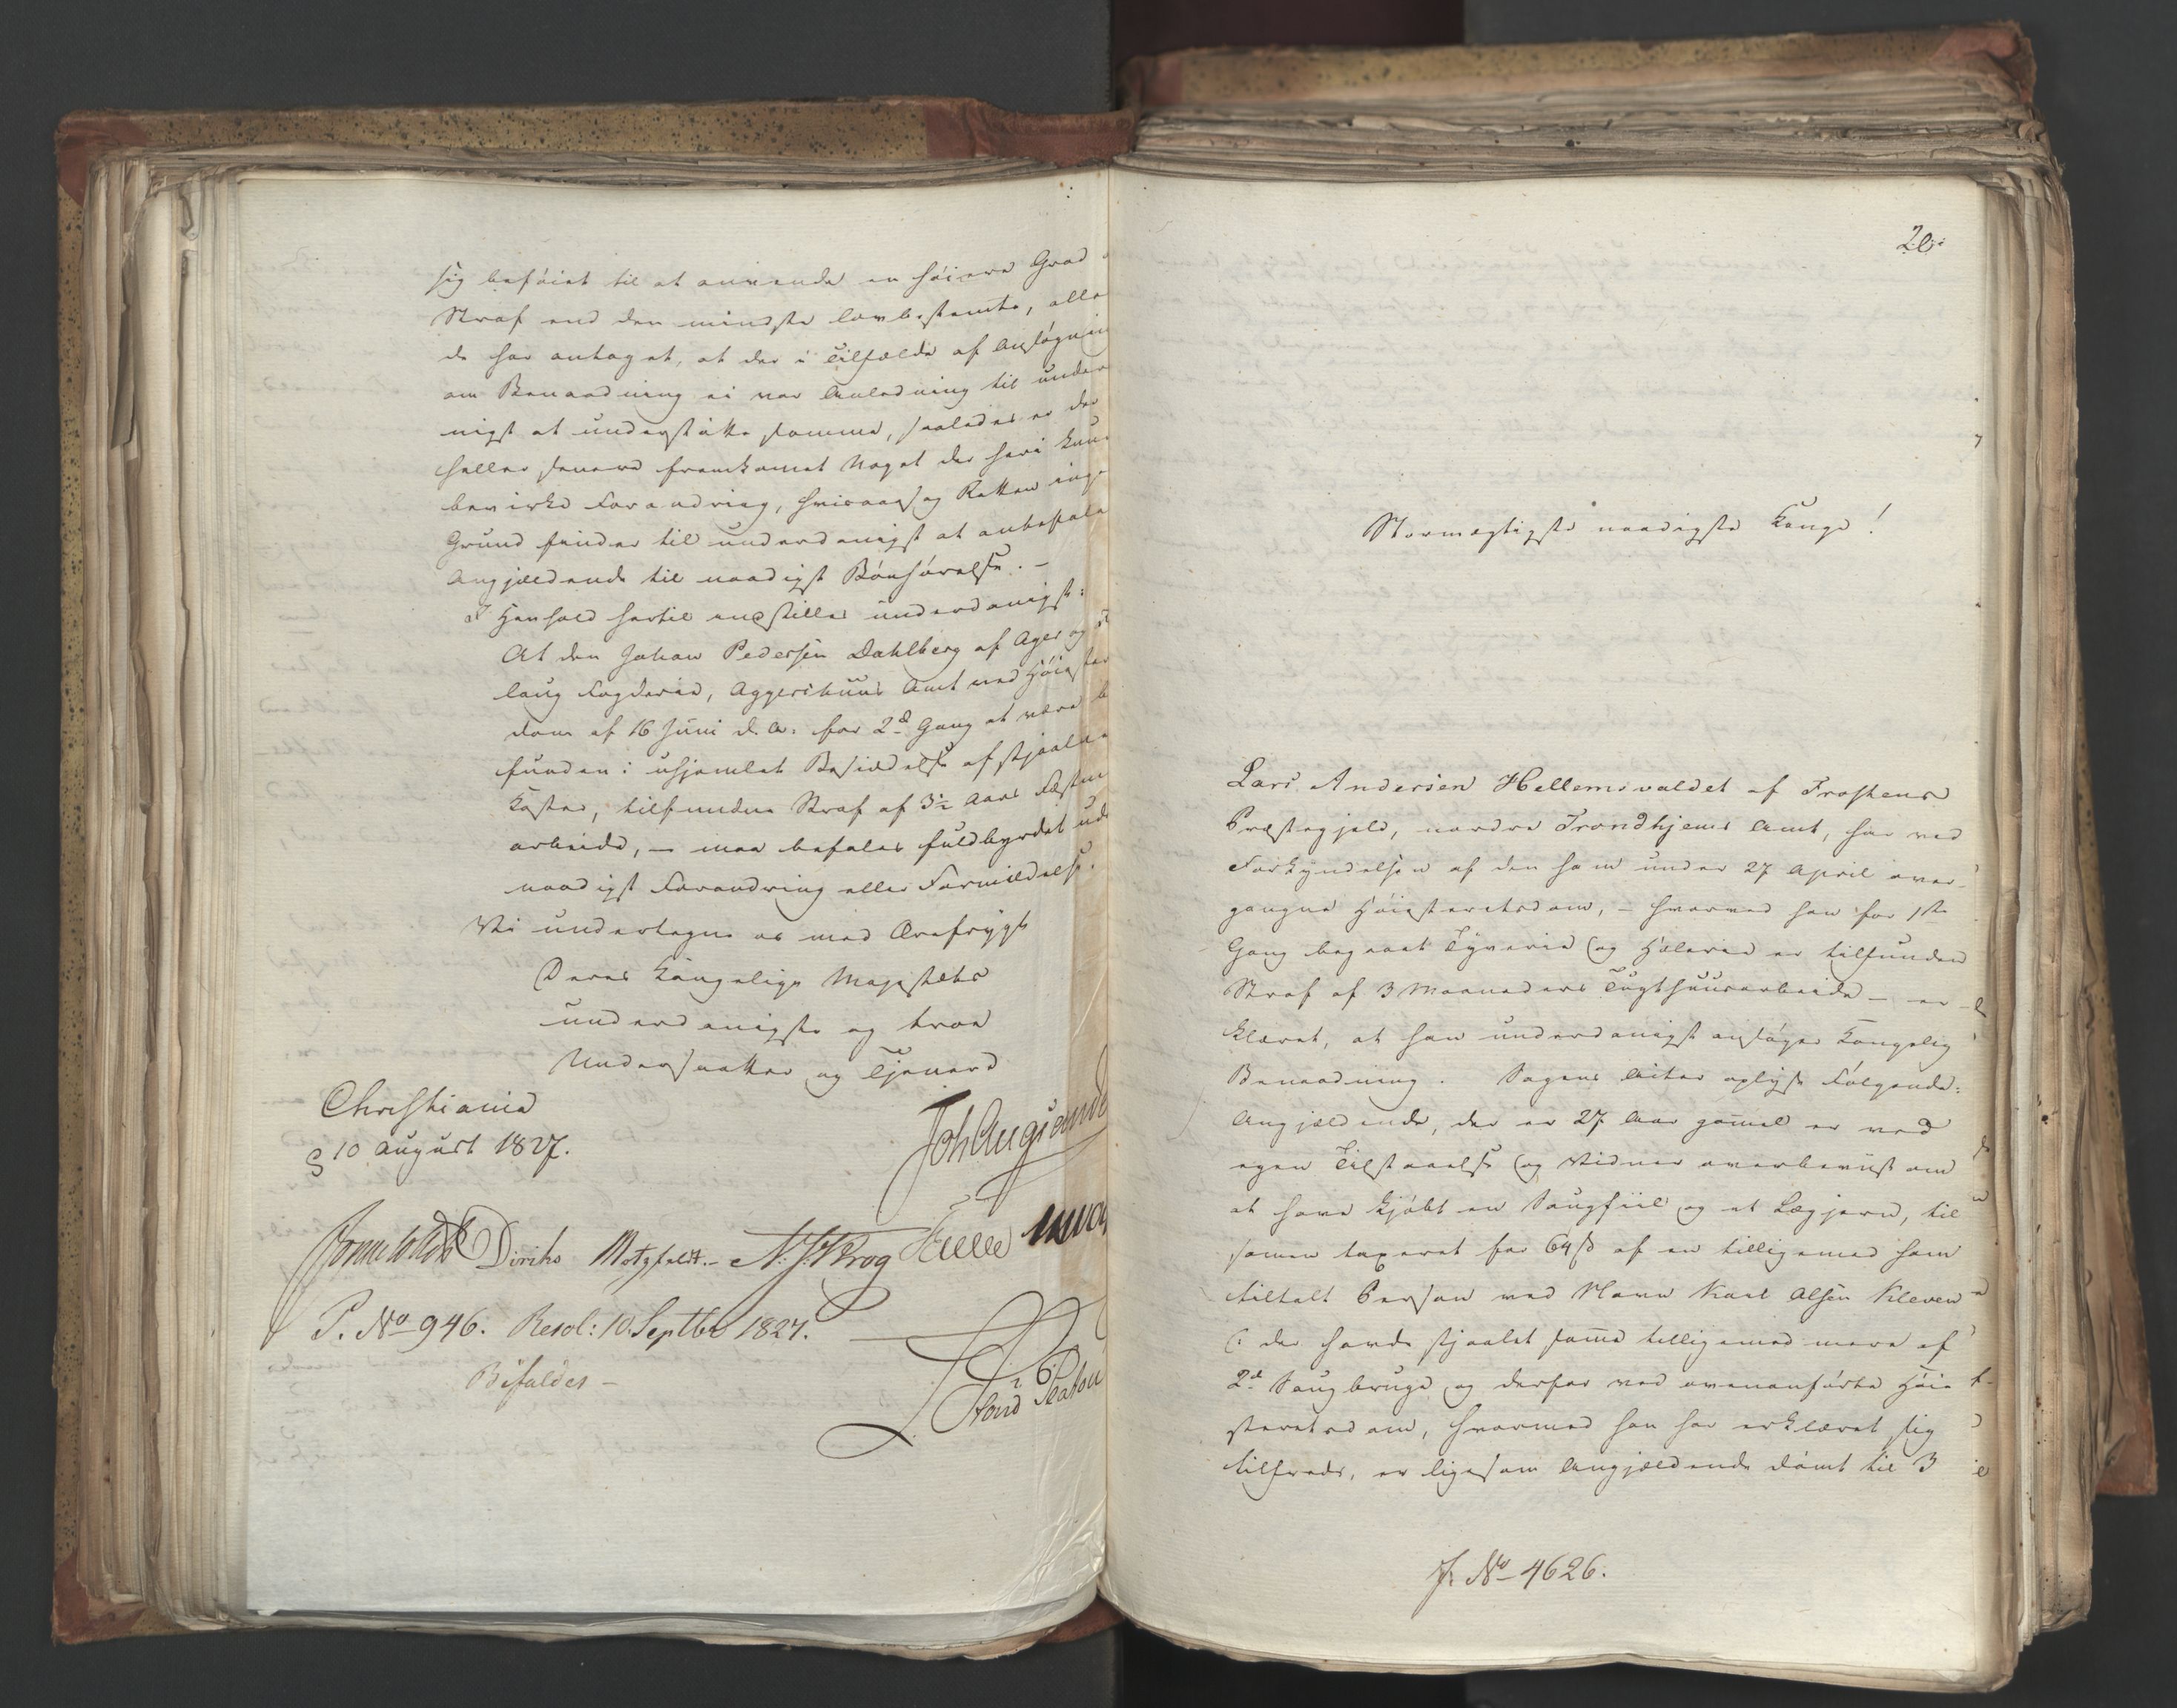 sig beføiet til at anvende en høiere Grad
Straf end den mindste lovbestemte, alle
de har antaget, at der i Tilfælde af Ansøgnin
om Benaadning ei var Anledning til under
nigst at understøtte samme, saaledes er der
heller senere fremkommet Noget der heri kun
bevirke Forandring, hvisaarsag Retten inge
Grund finder til underdanigst at anbefale
Angjældende til naadigst Bønhørelse. –
I Henhold hertil indstilles underdanigst:
At den Johan Pedersen Dahlberg af Ager og F
laug Fogderie, Aggershuus Amt ved Høieste
dom af 16 Juni d. A. for 2d Gang at være b
funden i uhjemlet Besiddelse af stjaalne
Koster, tilfundne Straf af 3½ Aars Fæstn
arbeide, – maa befales fuldbyrdet ude
naadigst Forandring eller Formildelse.
Vi undertegne os med Ærefrygt
Deres Kongelige Majestæts
underdanigste og troe
Undersaatter og Tjenere
Christiania
d 10 August 1827.
Joh Aug Sand
Diriks Motzfeldt. – N. J. Krog
P. No 946. Resol: 10. Septbr 1827.
Bifaldes –
20
Stormægtigste naadigste Konge!
Lars Andersen Hellemsvaldet af Frostens
Præstegjeld, nordre Trondhjems Amt, har ved
Forkyndelsen af den ham under 27 April over-
gangne Høiesteretsdom, – hvorved han for 1ste
Gang begaaet Tyverie og Hæleri er tilfunden
Straf af 3 Maaneders Tugthuusarbeide – er-
klæret, at han underdanigst ansøger Kongelig
Benaadning. Sagens Akter oplyse Følgende:
Angjældende, der er 27 Aar gammel er ved
egen Tilstaaelse og Vidner overbeviist om
at have kjøbt en Saugfiil og et Lægjern, til
samen taxeret for 64 s af en tilligemed ham
tiltalt Person ved Navn Karl Olsen Kleven
der havde stjaalet samme tilligemed mere af
2de Saugbruge og derfor ved ovenanførte Høie
steretsdom, hvormed han har erklæret sig
tilfreds, er ligesom Angjældende dømt til 3
J. No 4626.